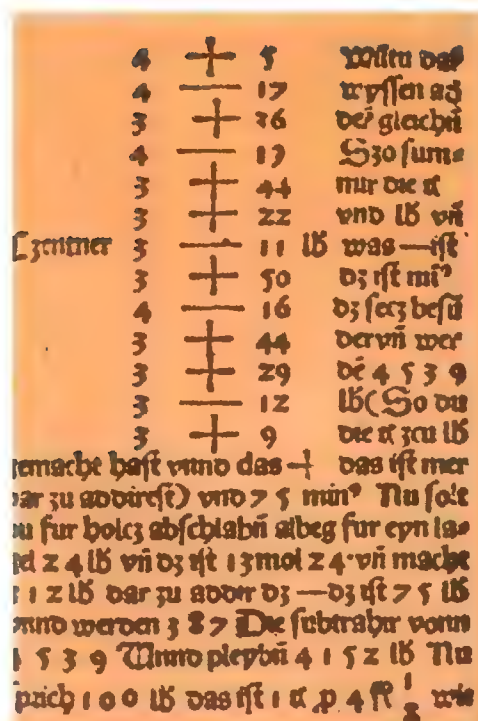 4 + 5 Wiltu das
4 — 17 wyssen ad
3 + 36 deꝰ gleichñ
4 — 19 Szo sum⸗
3 + 44 mir die ct
3 + 22 vnd lb vñ
Czentner 3 — 11 lb was — ist
3 + 50 dz ist miꝰ
4 — 16 dz secz besũ
3 + 44 dervñ wer
3 + 29 dẽ 4539
3 — 12 lb (So du
3 + 9 die ct zcu lb
gemacht hast vnnd das + das ist mer
dar zu addirest) vnd 75 minꝰ Nu solt
du fur holcz abschlahñ albeg fur eyn la⸗
24 lb vñ dz ist 13 mol 24 · vñ macht
312 lb dar zu addir dz — dz ist 75 lb
vnnd werden 387 Die subtrahir vonn
4539 Vnnd pleybñ 4152 lb Nu
sprich 100 lb das ist 1 ct p 4 fl 1/8 wie